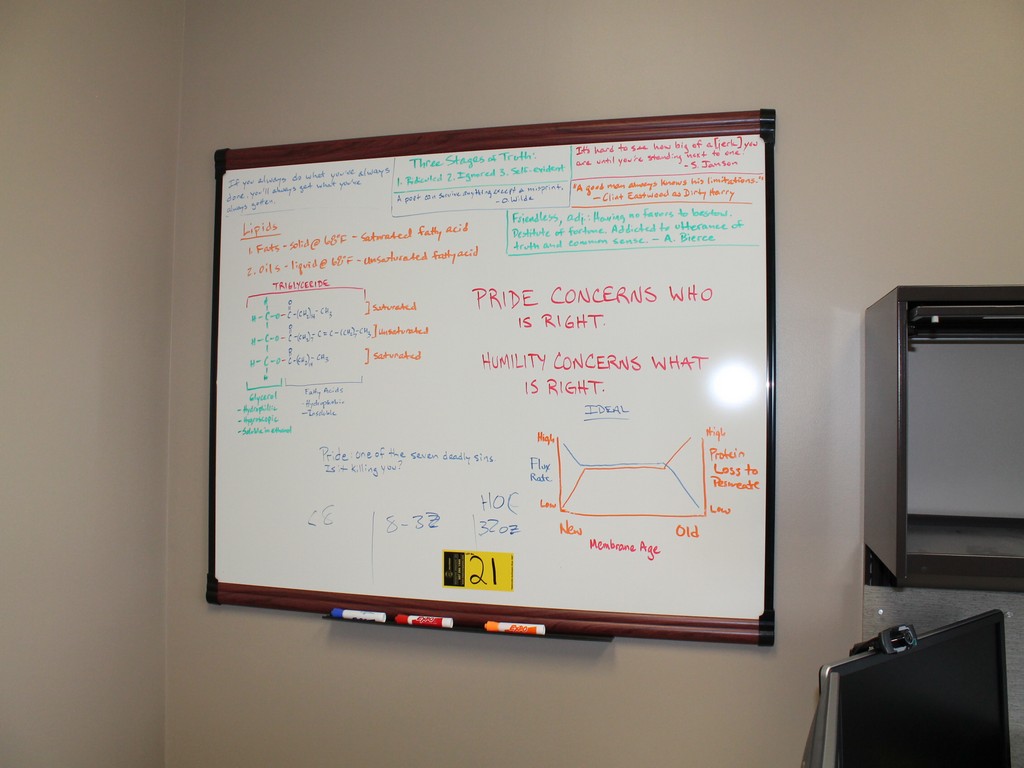 If you always do what you've always
done, you'll always get what you've
always gotten.
Three Stages of Truth:
1. Ridiculed 2. Ignored 3. Self-evident
A poet can survive anything except a misprint.
- O. Wilde
It's hard to see how big of a [jerk] you
are until you're standing next to one.
- S. Janson
"A good man always knows his limitations."
- Clint Eastwood as Dirty Harry
Friendless, adj.: Having no favors to bestow.
Destitute of fortune. Addicted to utterance of
truth and common sense. - A. Bierce
Lipids
1. Fats - solid @ 68°F - Saturated fatty acid
2. Oils - liquid @ 68°F - Unsaturated fatty acid
TRIGLYCERIDE
H O
H - C - O - C - (CH2)14 - CH3 ] Saturated
O
H - C - O - C - (CH2)7 - C = C - (CH2)7 - CH3 ] Unsaturated
O
H - C - O - C - (CH2)14 - CH3 ] Saturated
H
Glycerol
- Hydrophilic
- Hygroscopic
- Soluble in ethanol
Fatty Acids
- Hydrophobic
- Insoluble
PRIDE CONCERNS WHO
IS RIGHT.
HUMILITY CONCERNS WHAT
IS RIGHT.
Pride: one of the seven deadly sins.
Is it killing you?
IDEAL
High High
Flux
Rate
Protein
Loss to
Permeate
Low Low
New Old
Membrane Age
8-32
HOC
32oz
21
EXPO
EXPO